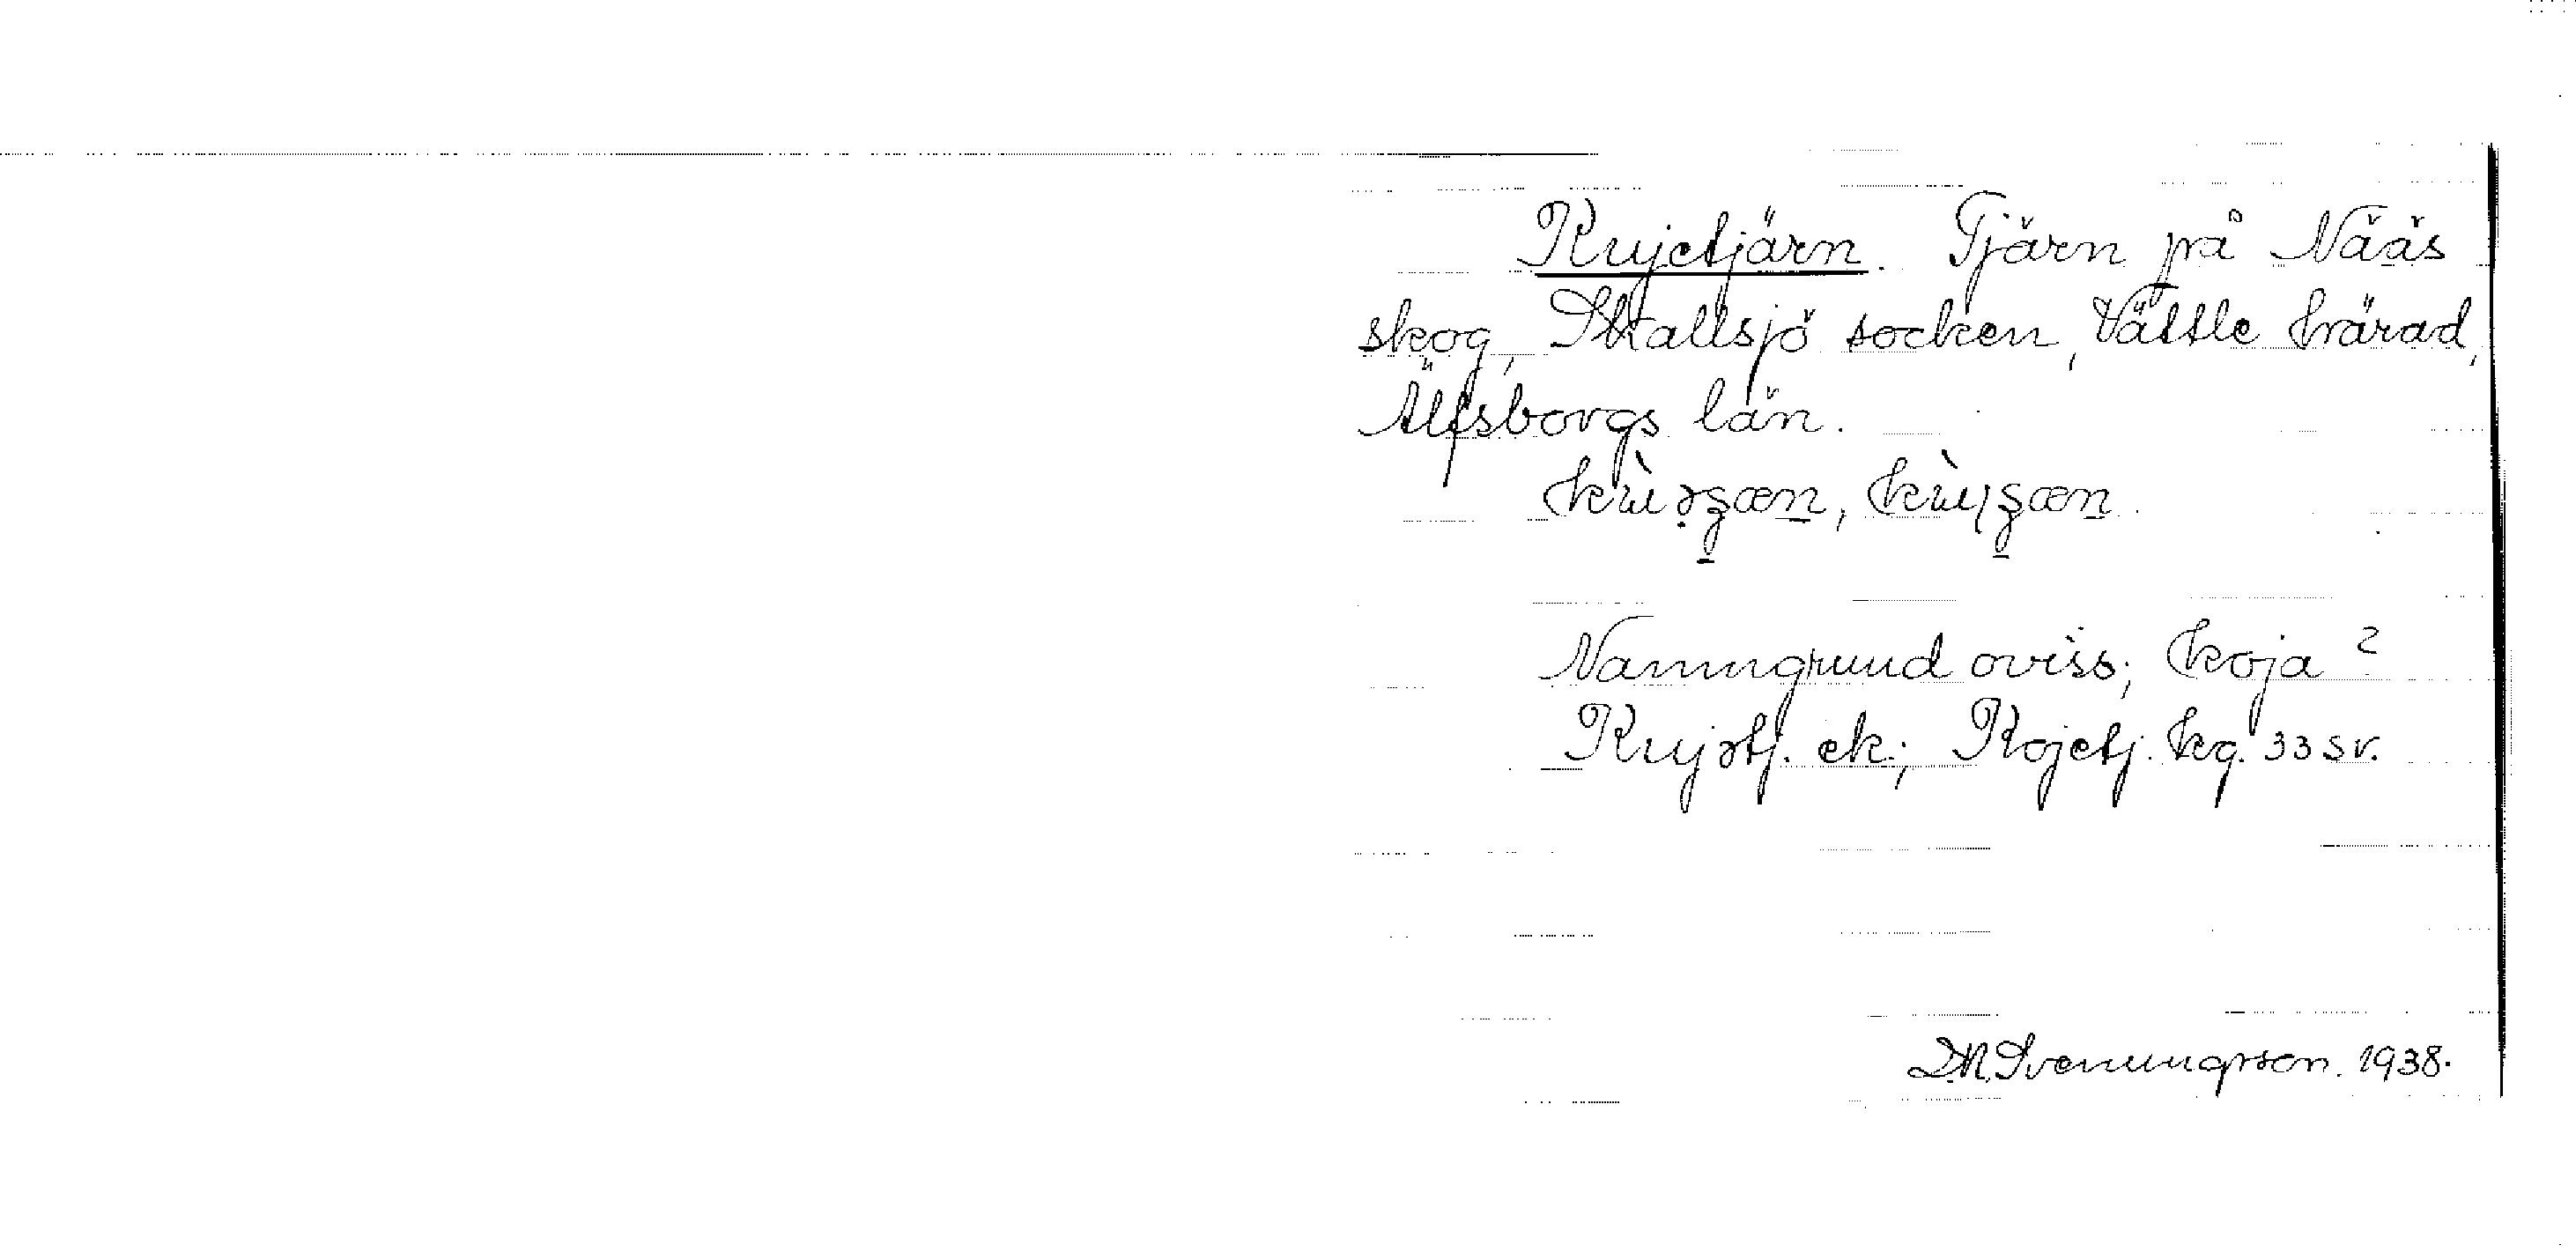 Kujetjärn. Tjärn på Nääs
skog, Skallsjö socken, Vättle härad,
Älfsborgs län.
Namngrund oviss; koja?
Kujətj. ek.; Kojetj. kg. 33 sv.
D.N. Svenungsson. 1938.